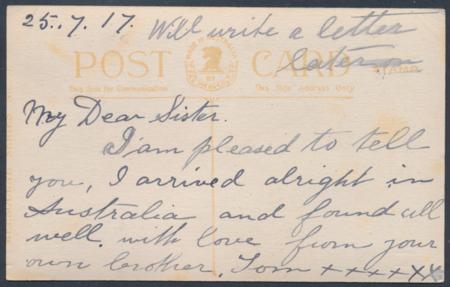 25.7.17. Will write a letter
later on
POST CARD
This Side for Communication. This Side Address Only
My Dear Sister.
I'am pleased to tell
you, I arrived alright in
Australia and found all
well. with love from your
own brother. Tom x x x x x x